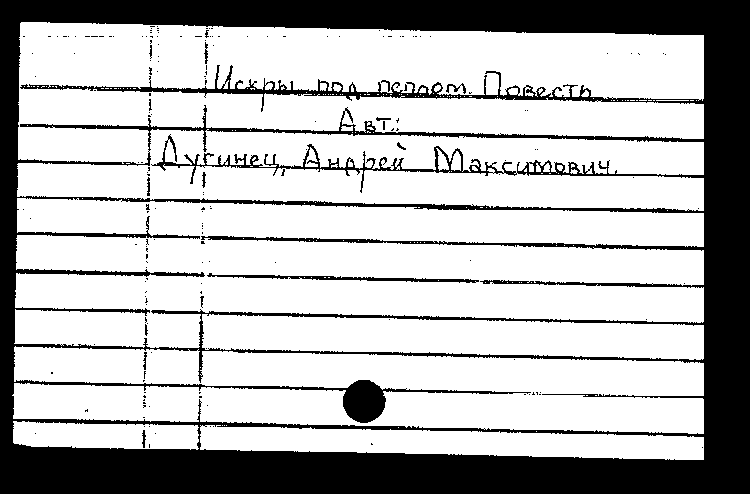 Искры под пеплом. Повесть
Авт.:
Дугинец, Андрей Максимович.